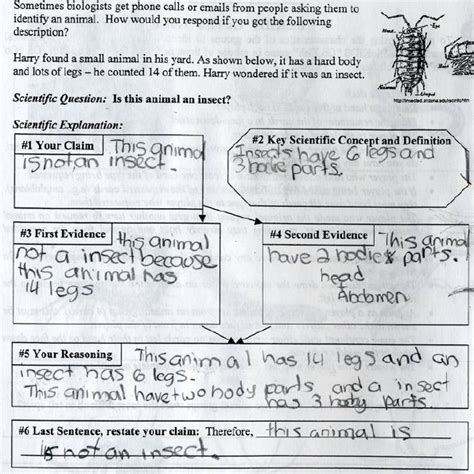 Sometimes biologists get phone calls or emails from people asking them to
identify an animal. How would you respond if you got the following
description?
Harry found a small animal in his yard. As shown below, it has a hard body
and lots of legs – he counted 14 of them. Harry wondered if it was an insect.
Head
Eye
Abdomen
Scientific Question: Is this animal an insect?
Scientific Explanation:
#1 Your Claim This animal
is not an insect.
#2 Key Scientific Concept and Definition
Insects have 6 legs and
3 body parts.
#3 First Evidence this animal
not a insect because
this animal has
14 legs
#4 Second Evidence This animal
have 2 bodies parts.
head
Abdomen
#5 Your Reasoning This anim al has 14 legs and an
insect has 6 legs.
This animal have two body parts and a insect
has 3 body parts.
#6 Last Sentence, restate your claim: Therefore, this animal is
is not an insect.